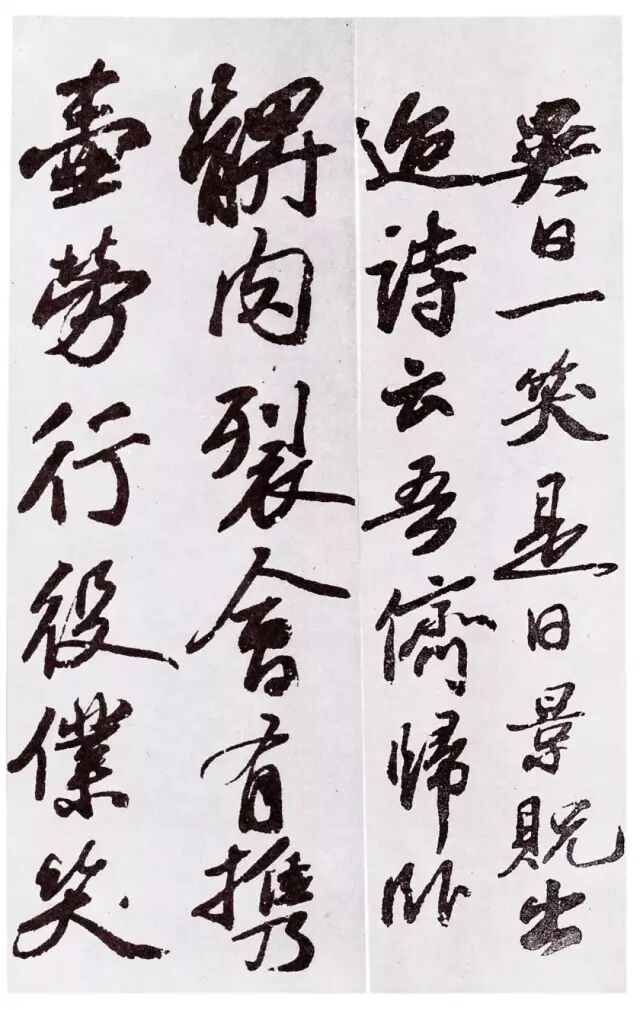 異日一笑是日景貺出
迨詩云吾儕歸卧
髀肉裂會有攜
壺勞行役僕笑